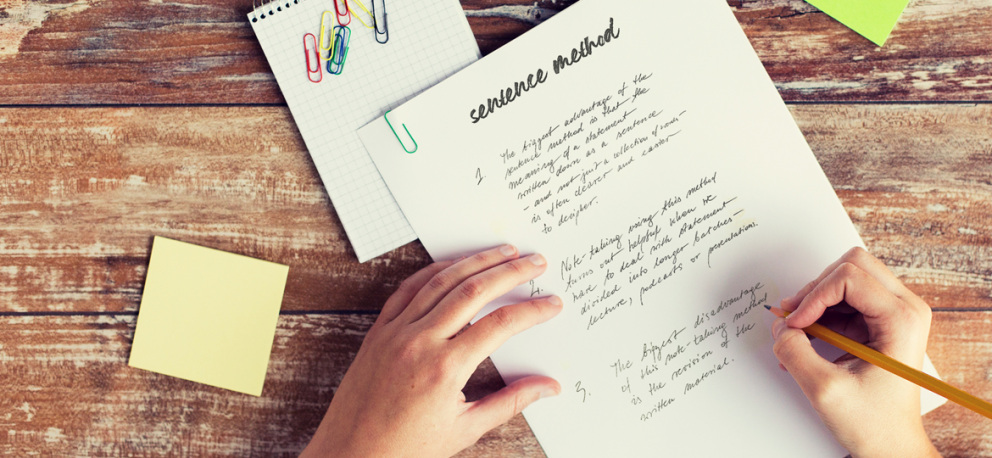 sentence method
1. The biggest advantage of the
sentence method is that the
meaning of a statement
written down as a sentence
- and not just a collection of words -
is often clearer and easier
to decipher.
2. Note-taking using this method
turns out helpful when we
have to deal with statement
divided into longer batches -
lecture, podcasts or presentations.
3. The biggest disadvantage
of this note-taking method
is the revision of the
written material.